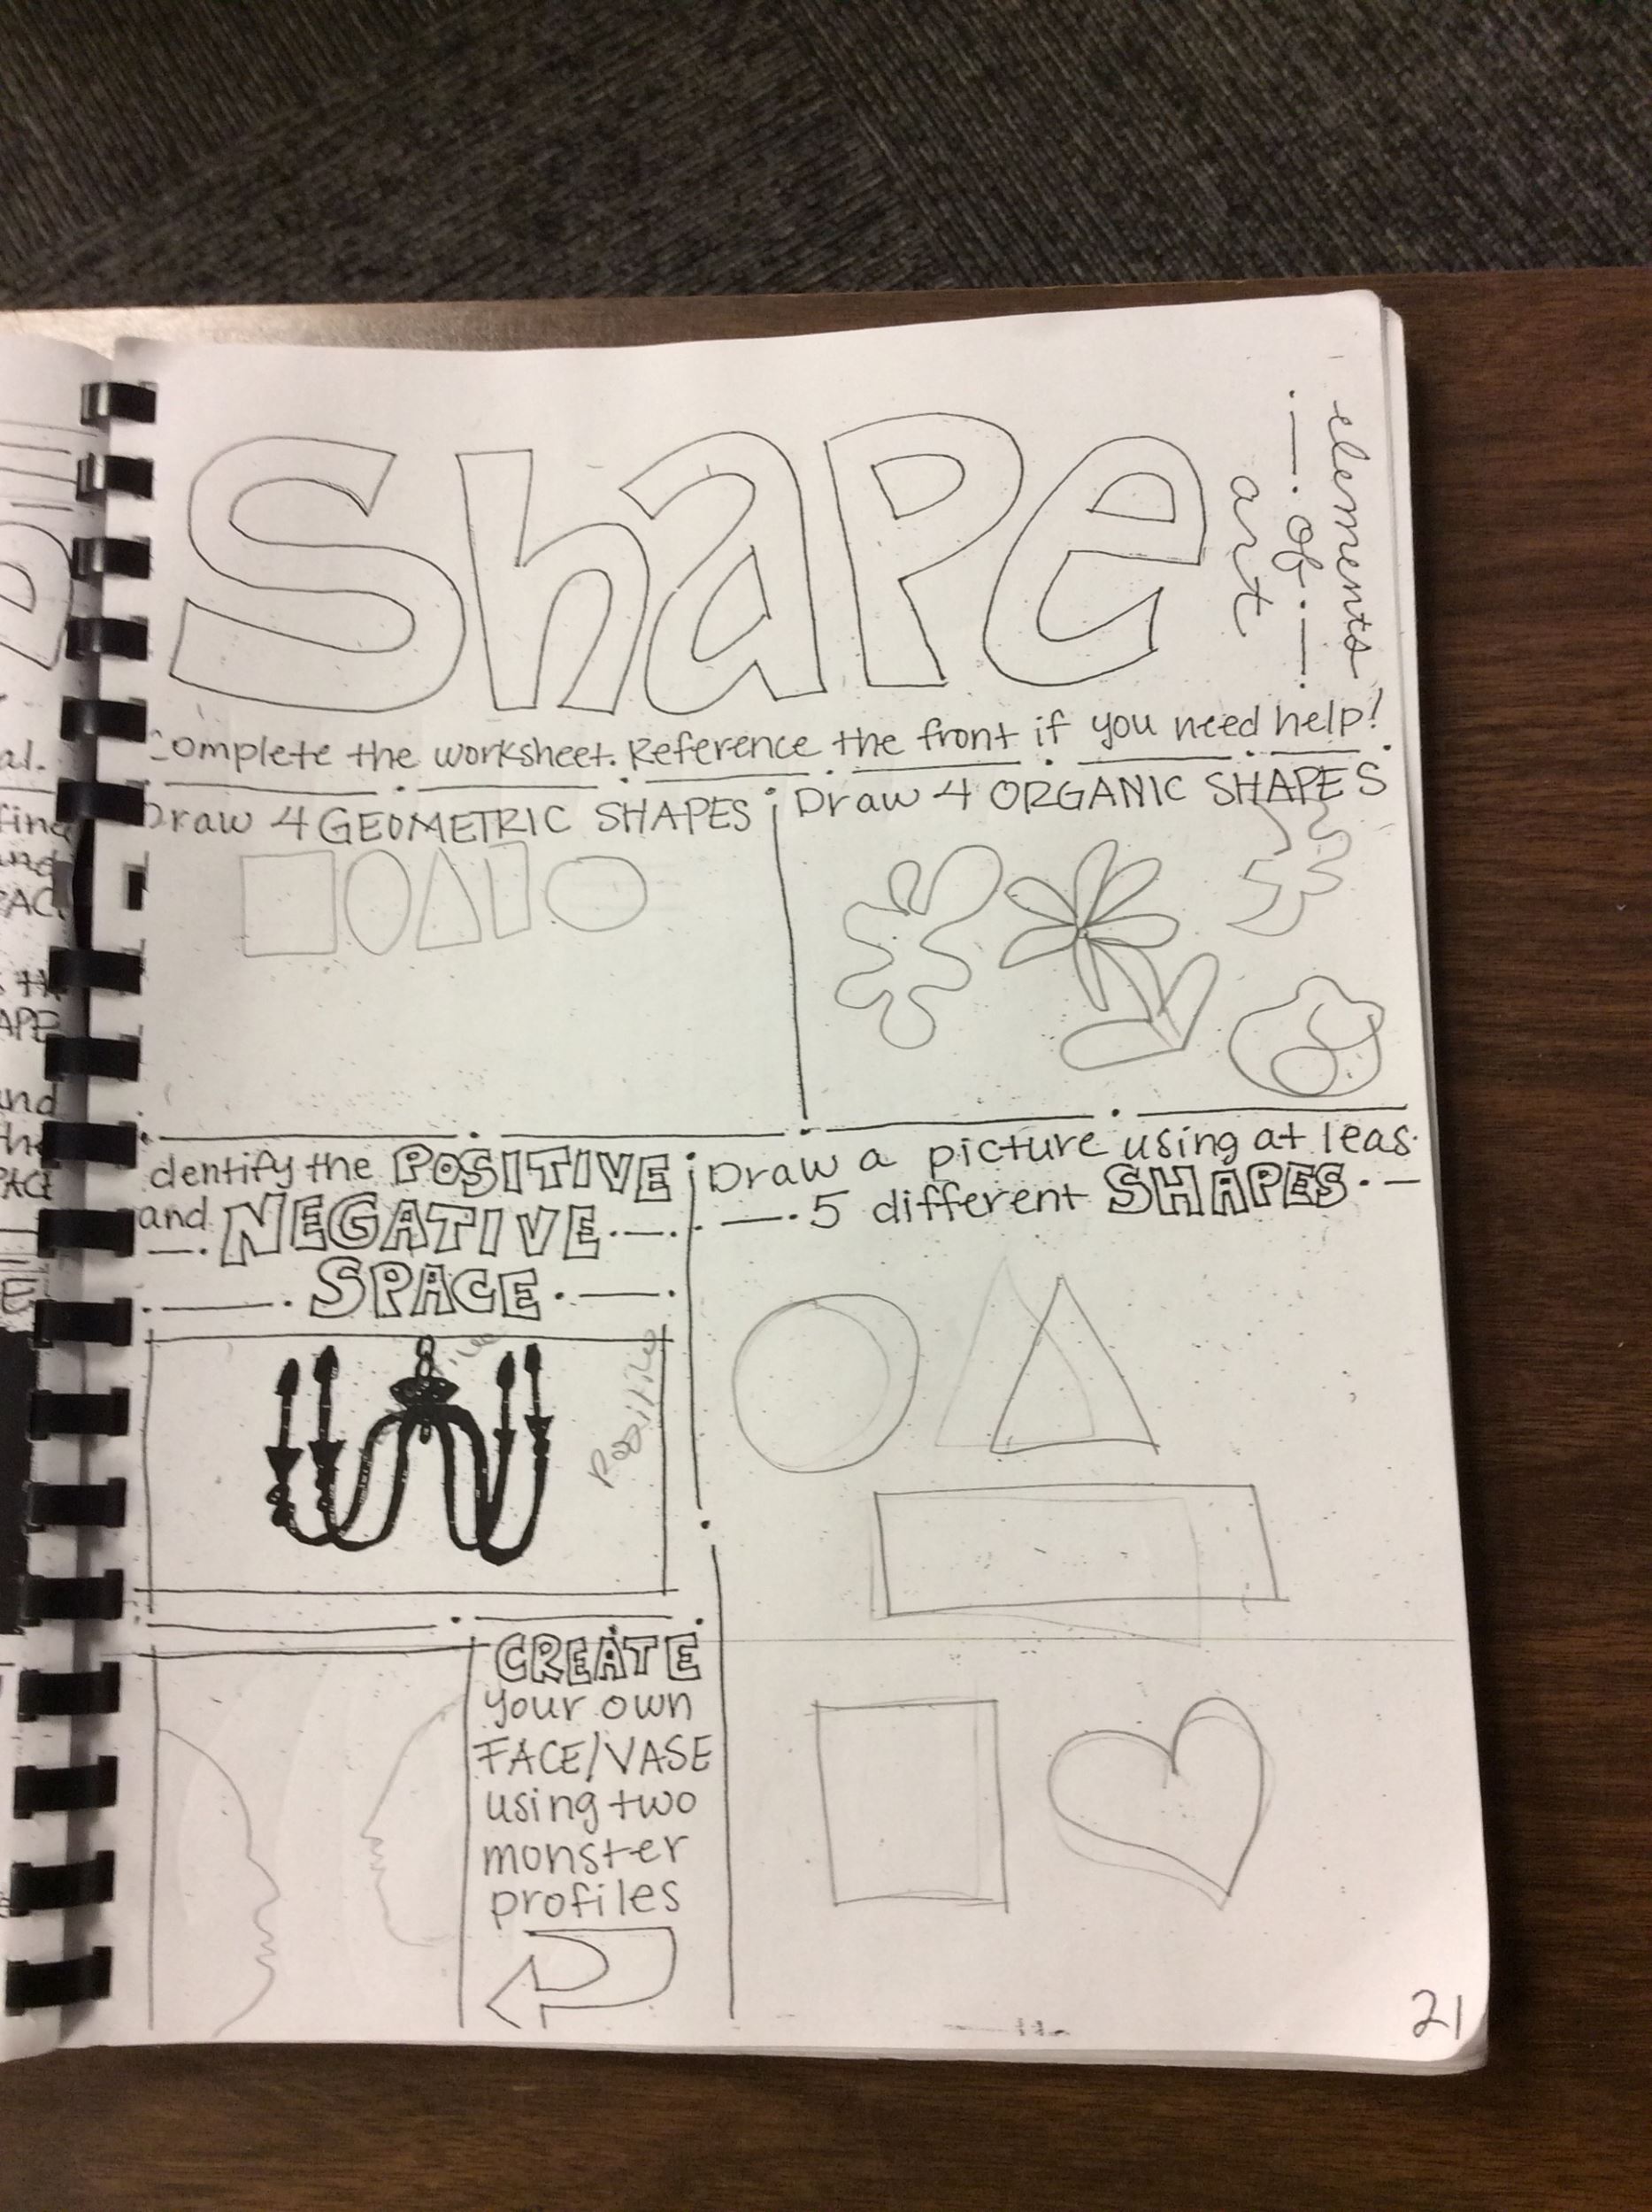 Shape
elements
of
art
Complete the worksheet. Reference the front if you need help!
Draw 4 GEOMETRIC SHAPES
Draw 4 ORGANIC SHAPES
dentify the POSITIVE
and NEGATIVE
SPACE
Positive
Draw a picture using at leas
5 different SHAPES
CREATE
your own
FACE/VASE
using two
monster
profiles
21
al.
find
and
PAC
APE
and
the
PACE
E